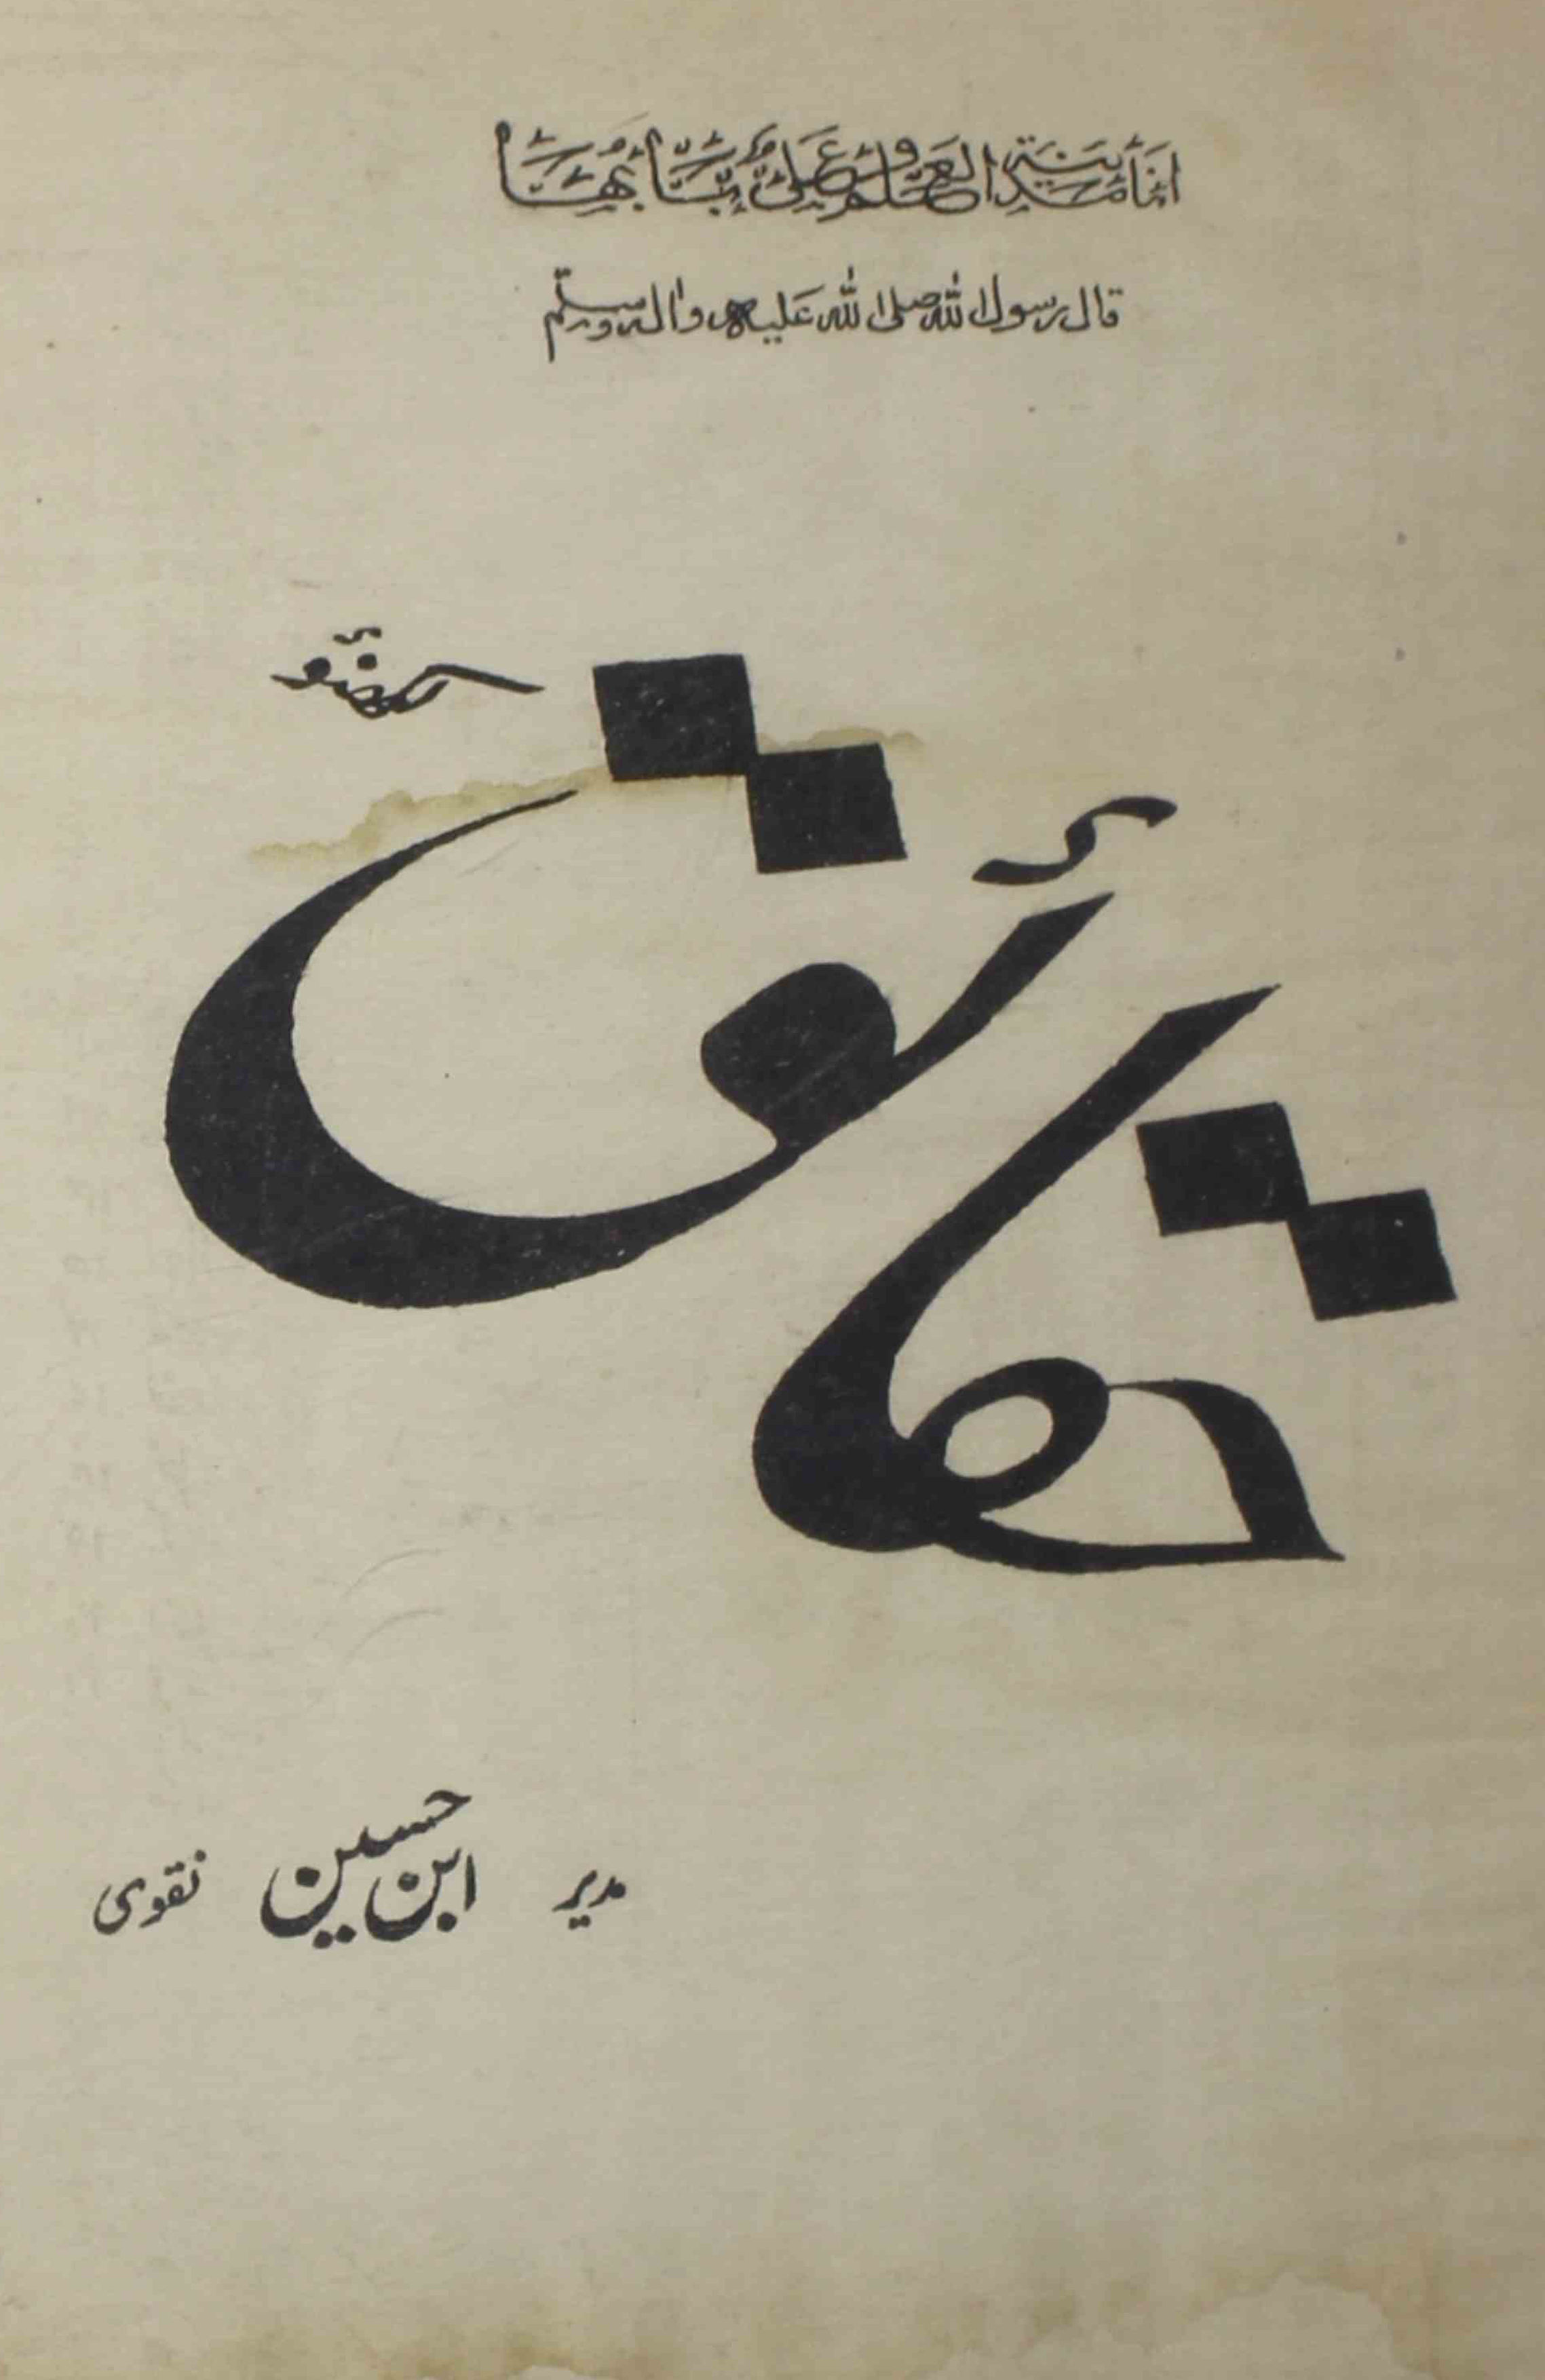 اَنَا مَدِيْنَةُ الْعِلْمِ وَعَلِيٌّ بَابُهَا
قال رسول اللہ صلی اللہ علیہ واٰلہ وسلّم
حقائق
لکھنؤ
مدیر ابن حسین نقوی